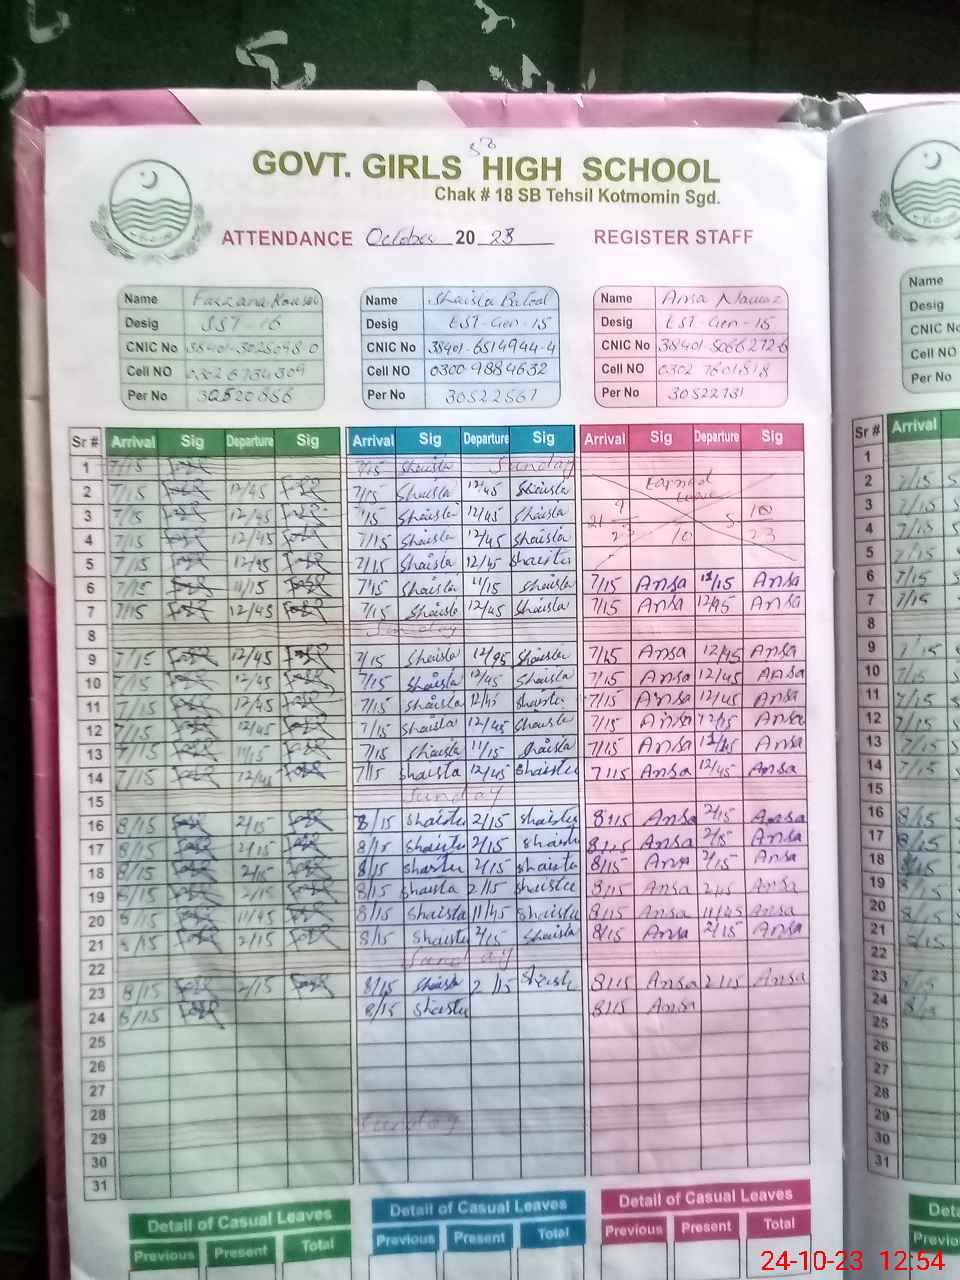 GOVT. GIRLS HIGH SCHOOL
Chak # 18 SB Tehsil Kotmomin Sgd.
ATTENDANCE October 20 23 REGISTER STAFF
Name Farzana Kousar Name Shaista Batool Name Ansa Nawaz Name
Desig SST-16 Desig EST-Gen-15 Desig EST-Gen-15 Desig
CNIC No CNIC No 38401-6514944-4 CNIC No 38401-5066272-6 CNIC No
Cell NO 0302 6734309 Cell NO 0300-9884632 Cell NO 0302 7601818 Cell NO
Per No 30520866 Per No 30522567 Per No 30522731 Per No
Sr # Arrival Sig Departure Sig Arrival Sig Departure Sig Arrival Sig Departure Sig Sr # Arrival
1 7/15 7/15 Shaista Sunday 1
2 7/15 12/45 7/15 Shaista 12/45 Shaista Earned Leave 2 7/15
3 7/15 12/45 7/15 Shaista 12/45 Shaista 3 7/15
4 7/15 12/45 7/15 Shaista 12/45 Shaista 4 7/15
5 7/15 12/45 7/15 Shaista 12/45 Shaista 5 7/15
6 7/15 11/15 7/15 Shaista 11/15 Shaista 7/15 Ansa 11/15 Ansa 6 7/15
7 7/15 12/45 7/15 Shaista 12/45 Shaista 7/15 Ansa 12/45 Ansa 7 7/15
8 Sunday 8
9 7/15 12/45 7/15 Shaista 12/45 Shaista 7/15 Ansa 12/45 Ansa 9 7/15
10 7/15 12/45 7/15 Shaista 12/45 Shaista 7/15 Ansa 12/45 Ansa 10 7/15
11 7/15 12/45 7/15 Shaista 12/45 Shaista 7/15 Ansa 12/45 Ansa 11 7/15
12 7/15 12/45 7/15 Shaista 12/45 Shaista 7/15 Ansa Ansa 12 7/15
13 7/15 11/15 7/15 Shaista 11/15 Shaista 7/15 Ansa Ansa 13 7/15
14 7/15 12/45 7/15 Shaista 12/45 Shaista 7/15 Ansa 12/45 Ansa 14 7/15
15 Sunday 15
16 8/15 2/15 8/15 Shaista 2/15 Shaista 8/15 Ansa 2/15 Ansa 16 8/15
17 8/15 2/15 8/15 Shaista 2/15 Shaista 8/15 Ansa 2/15 Ansa 17 8/15
18 8/15 2/15 8/15 Shaista 2/15 Shaista 8/15 Ansa 2/15 Ansa 18 8/15
19 8/15 2/15 8/15 Shaista 2/15 Shaista 8/15 Ansa 2/15 Ansa 19 8/15
20 8/15 11/45 8/15 Shaista 11/45 Shaista 8/15 Ansa 11/45 Ansa 20 8/15
21 8/15 2/15 8/15 Shaista 2/15 Shaista 8/15 Ansa 2/15 Ansa 21 8/15
22 Sunday 22
23 8/15 2/15 8/15 Shaista 2/15 Shaista 8/15 Ansa 2/15 Ansa 23 8/15
24 8/15 8/15 Shaista 8/15 Ansa 24 8/15
25 25
26 26
27 27
28 Sunday 28
29 29
30 30
31 31
Detail of Casual Leaves Detail of Casual Leaves Detail of Casual Leaves
Previous Present Total Previous Present Total Previous Present Total
24-10-23 12:54